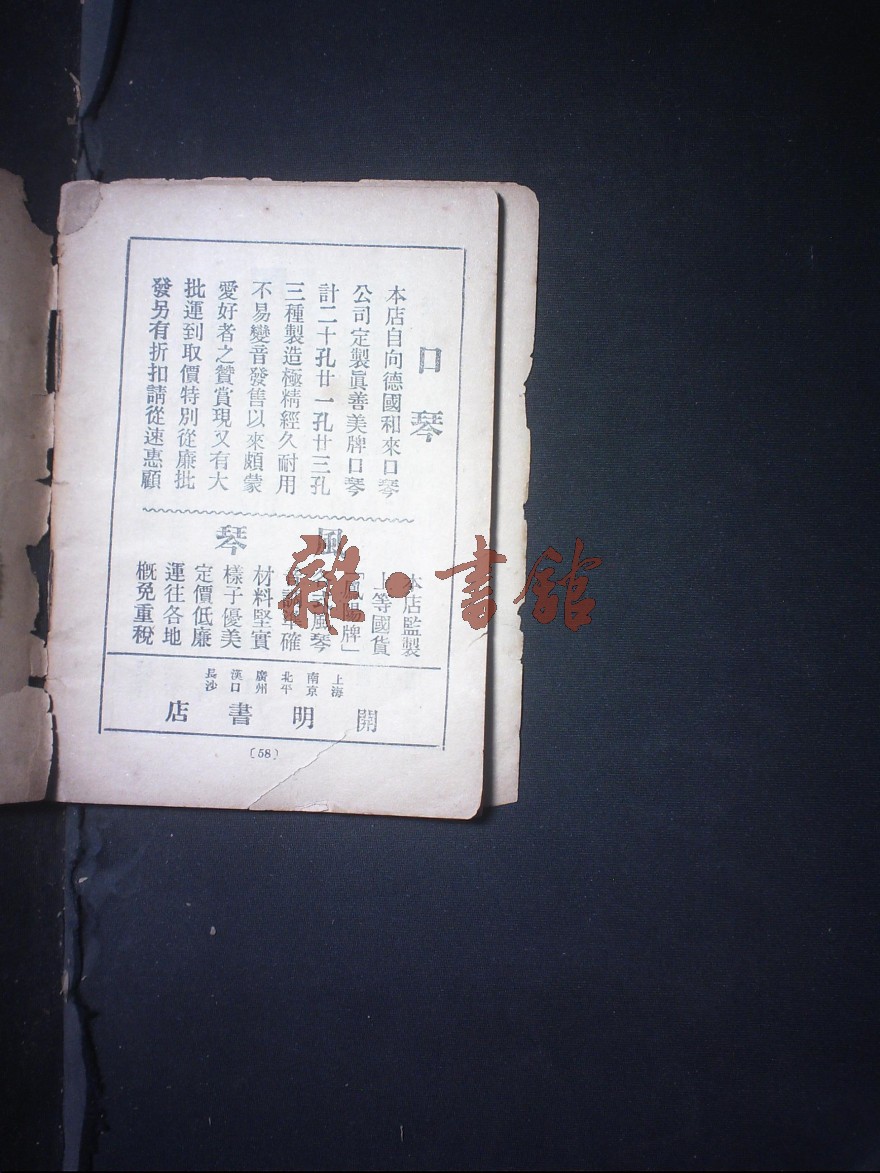 口琴
本店自向德國和來口琴
公司定製眞善美牌口琴
計二十孔廿一孔廿三孔
三種製造極精經久耐用
不易變音發售以來頗蒙
愛好者之贊賞現又有大
批運到取價特別從廉批
發另有折扣請從速惠顧
風琴
本店監製
上等國貨
牌」
風琴
確
材料堅實
樣子優美
定價低廉
運往各地
概免重稅
上海
南京
北平
廣州
漢口
長沙
開明書店
〔58〕
雜·書館